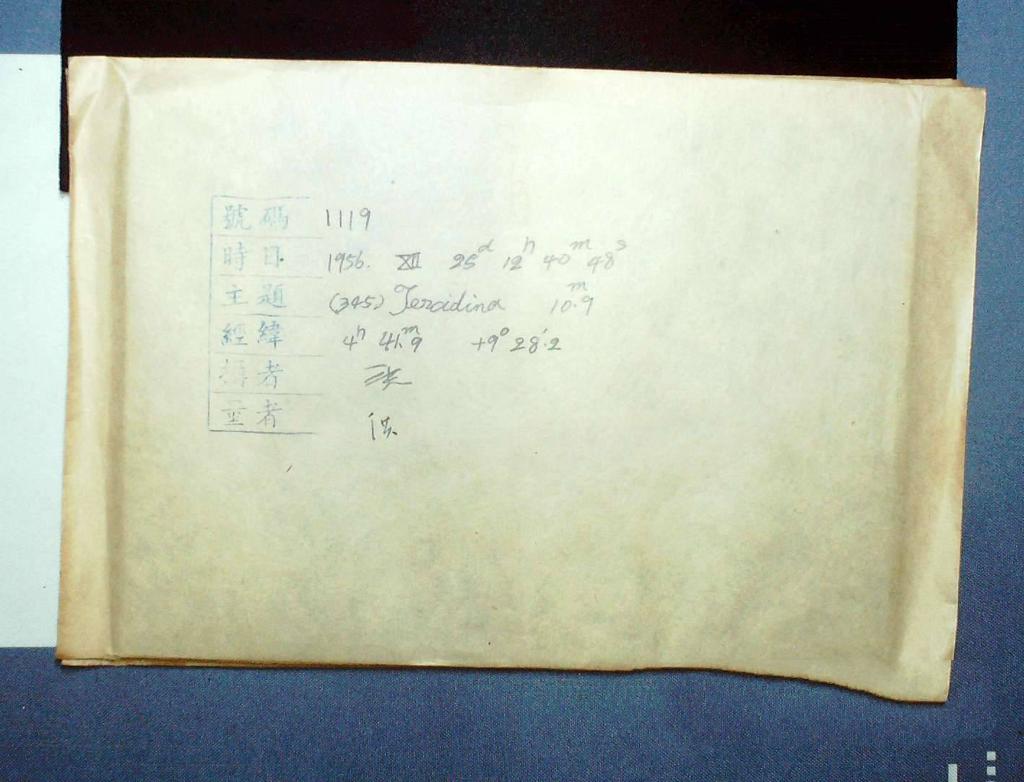 號碼 1119
時日 1956. XII 25ᵈ 12ʰ 40ᵐ 48ˢ
主題 (345) Tercidina 10ᵐ.9
經緯 4ʰ 41ᵐ.9 +9° 28′.2
攝者 張
量者